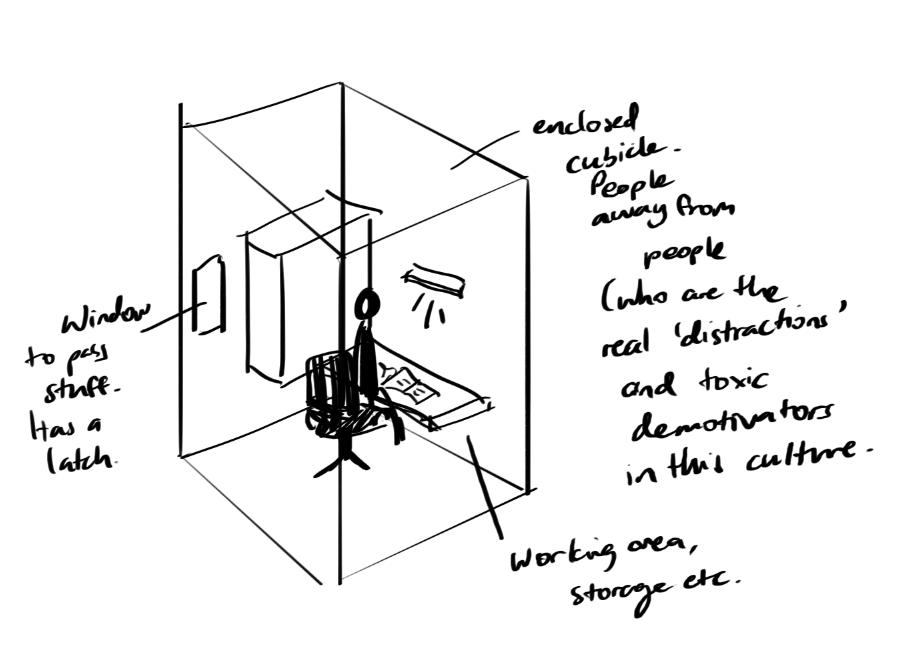 enclosed
cubicle.
People
away from
people
(who are the
real 'distractions'
and toxic
demotivators
in this culture.
Window
to pass
stuff.
Has a
latch.
Working area,
storage etc.